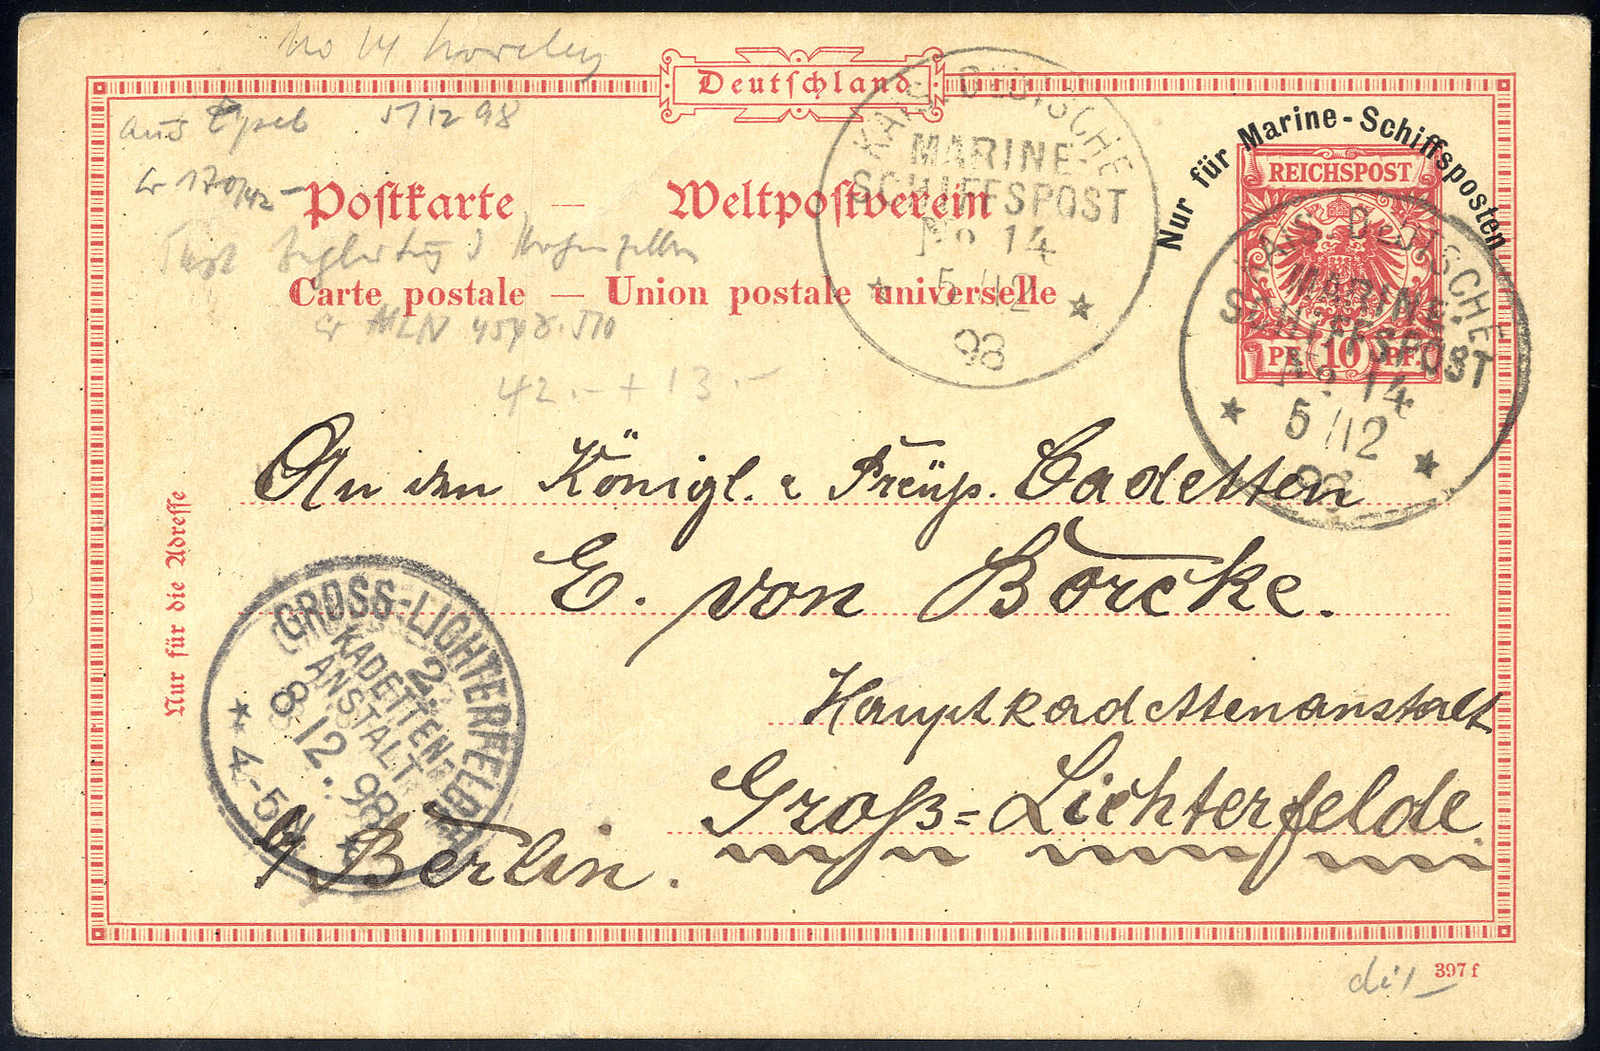 Deutschland
aus
5/12 98
Postkarte — Weltpostverein
Carte postale — Union postale universelle
42.- + 13.-
KAIS. DEUTSCHE
MARINE-
SCHIFFSPOST
No 14
5/12
98
Nur für Marine-Schiffsposten
REICHSPOST
PF. 10 PF.
KAIS. DEUTSCHE
MARINE-
SCHIFFSPOST
No 14
5/12
98
Nur für die Adresse
An den Königl. Preuß. Cadetten
E. von Borcke.
Hauptkadettenanstalt
Groß-Lichterfelde
b/ Berlin.
GROSS-LICHTERFELDE
2.
KADETTEN-
ANSTALT
8.12.98
4-5N
397 f